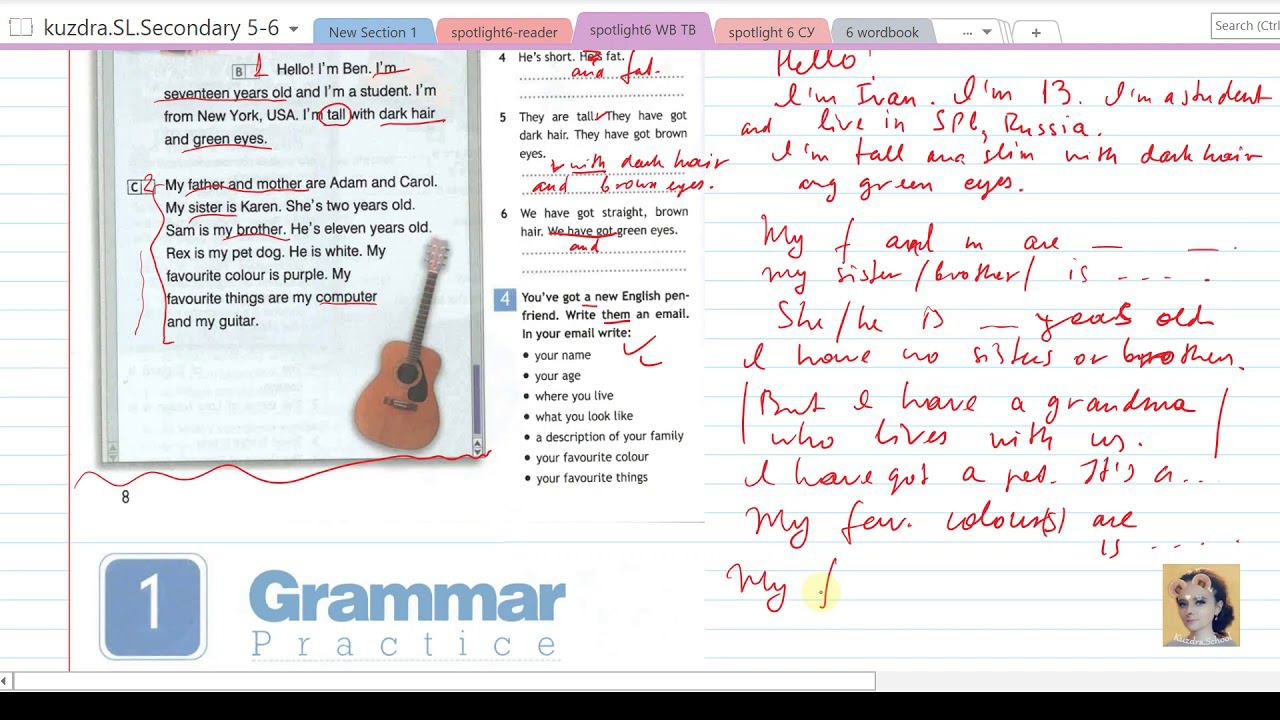 kuzdra.SL.Secondary 5-6
New Section 1
spotlight6-reader
spotlight6 WB TB
spotlight 6 СУ
6 wordbook
...
Search (Ctrl
B 1 Hello! I'm Ben. I'm
seventeen years old and I'm a student. I'm
from New York, USA. I'm tall with dark hair
and green eyes.
C 2 My father and mother are Adam and Carol.
My sister is Karen. She's two years old.
Sam is my brother. He's eleven years old.
Rex is my pet dog. He is white. My
favourite colour is purple. My
favourite things are my computer
and my guitar.
8
4 He's short. He's fat.
and fat.
5 They are tall. They have got
dark hair. They have got brown
eyes.
with dark hair
and brown eyes.
6 We have got straight, brown
hair. We have got green eyes.
and
4 You've got a new English pen-
friend. Write them an email.
In your email write:
• your name
• your age
• where you live
• what you look like
• a description of your family
• your favourite colour
• your favourite things
Hello!
I'm Ivan. I'm 13. I'm a student
and live in SPb, Russia.
I'm tall and slim with dark hair
and green eyes.
My f and m are __ __.
My sister/brother/ is ....
She/he is __ years old
I have no sisters or brothers.
But I have a grandma
who lives with us.
I have got a pet. It's a...
My fav. colour(s) are
is ....
My f
1
Grammar
Practice
Kuzdra_School